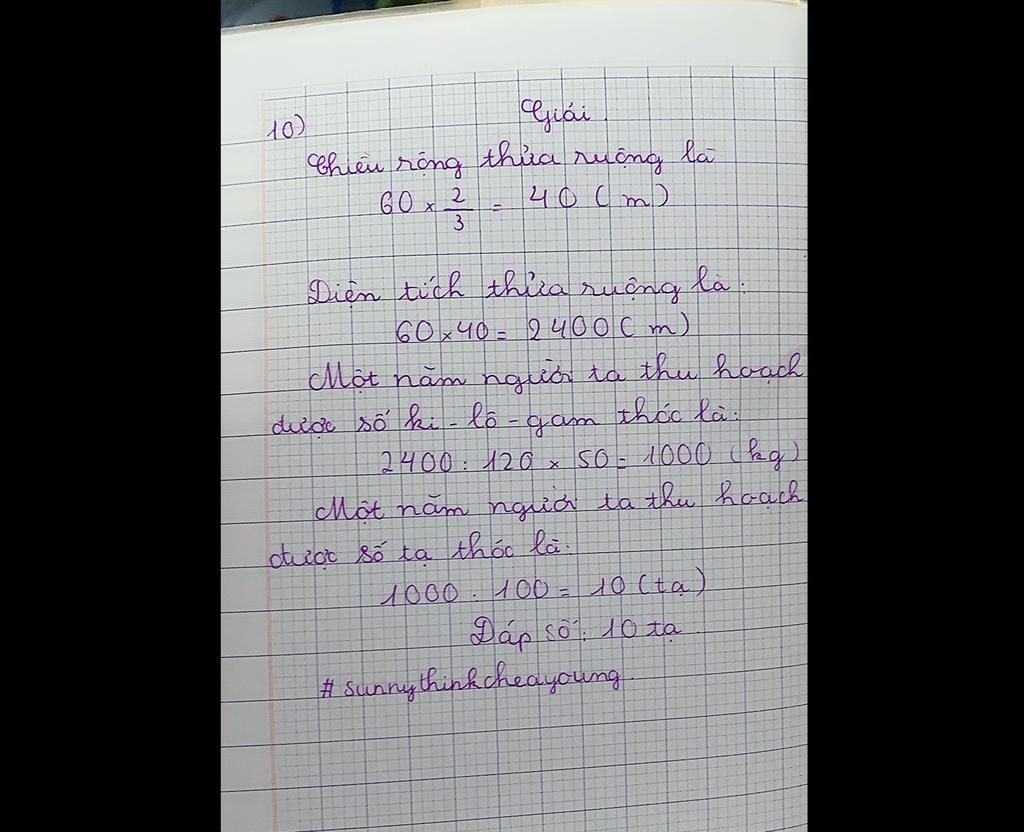 10) Giải
Chiều rộng thửa ruộng là
60 × 2/3 = 40 ( m)
Diện tích thửa ruộng là :
60 × 40 = 2400 ( m)
Một năm người ta thu hoạch
được số ki - lô - gam thóc là :
2400 : 120 × 50 = 1000 (kg)
Một năm người ta thu hoạch
được số tạ thóc là :
1000 : 100 = 10 (tạ)
Đáp số : 10 tạ
# sunnythinkcheayoung